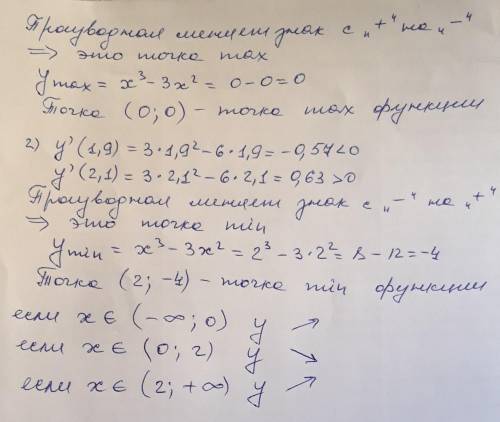 Производная меняет знак с "+" на "-"
=> это точка max
y max = x³ - 3x² = 0 - 0 = 0
Точка (0; 0) - точка max функции
2) y' (1,9) = 3·1,9² - 6·1,9 = -0,57 < 0
y' (2,1) = 3·2,1² - 6·2,1 = 0,63 > 0
Производная меняет знак с "-" на "+"
=> это точка min
y min = x³ - 3x² = 2³ - 3·2² = 8 - 12 = -4
Точка (2; -4) - точка min функции
если x ∈ (-∞; 0) y ↗
если x ∈ (0; 2) y ↘
если x ∈ (2; +∞) y ↗